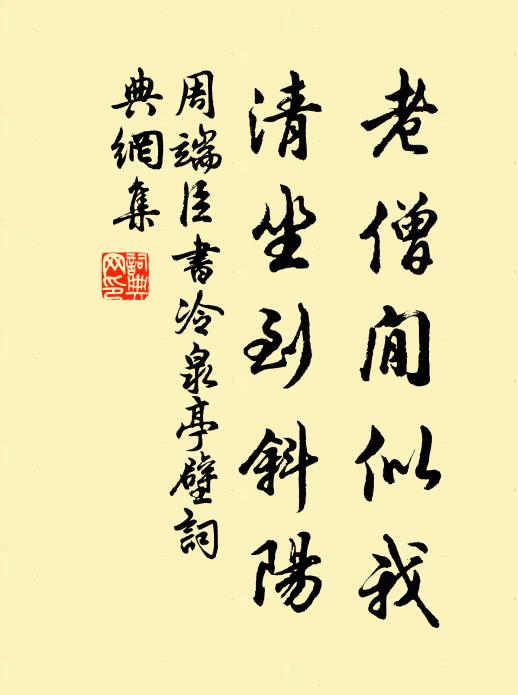 老僧閒似我
清坐到斜陽
周端臣書冷泉亭壁詞
典網集
詞典網印